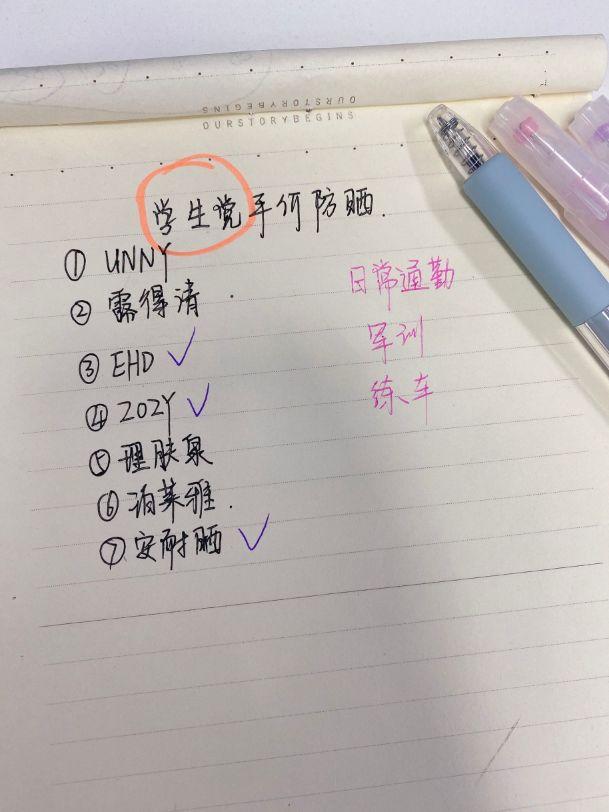 OURSTORYBEGINS
OURSTORYBEGINS
学生党平价防晒.
① UNNY
② 露得清
③ EHD ✓
④ ZOZY ✓
⑤ 理肤泉
⑥ 珀莱雅.
⑦ 安耐晒 ✓
日常通勤
军训
练车